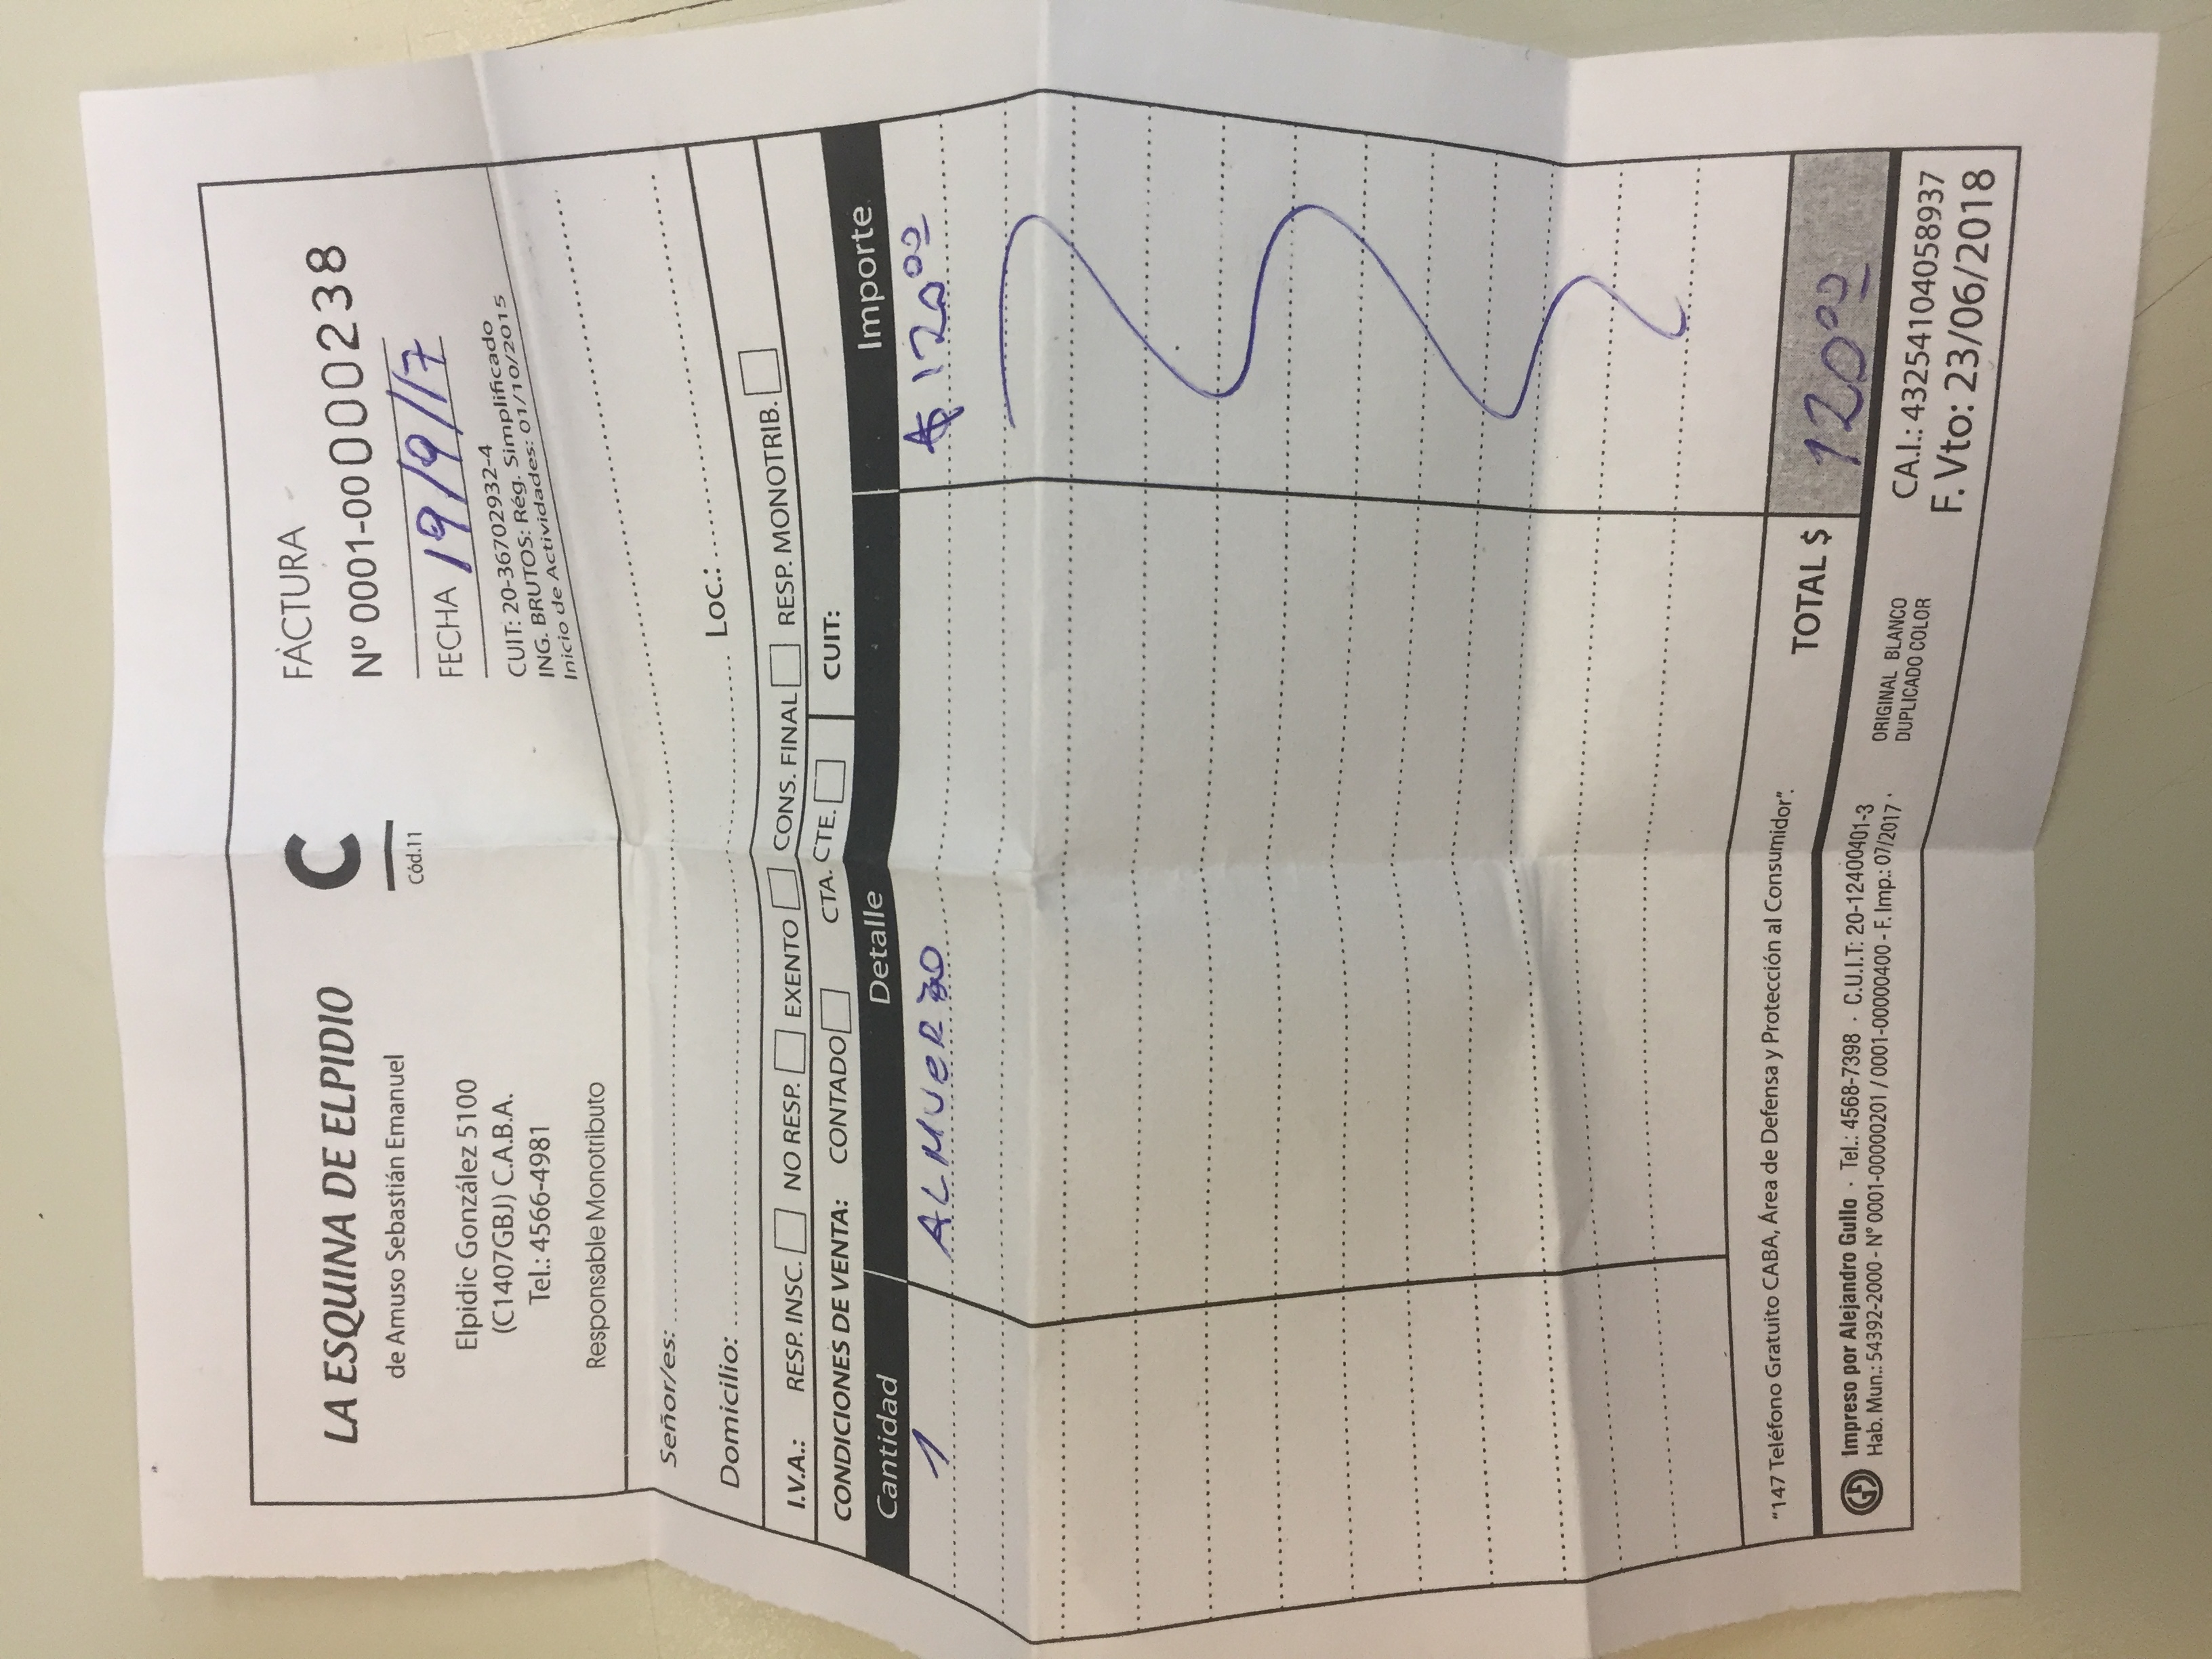 LA ESQUINA DE ELPIDIO
de Amuso Sebastián Emanuel
Elpidic González 5100
(C1407GBJ) C.A.B.A.
Tel.: 4566-4981
Responsable Monotributo
C
Cód.11
FACTURA
Nº 0001-00000238
FECHA 19/9/17
CUIT: 20-36702932-4
ING. BRUTOS: Rég. Simplificado
Inicio de Actividades: 01/10/2015
Señor/es:
Domicilio: Loc.:
I.V.A.: RESP. INSC. NO RESP. EXENTO CONS. FINAL RESP. MONOTRIB.
CONDICIONES DE VENTA: CONTADO CTA. CTE. CUIT:
Cantidad Detalle Importe
1 ALMUERZO $ 120⁰⁰
"147 Teléfono Gratuito CABA, Área de Defensa y Protección al Consumidor".
TOTAL $ 120⁰⁰
Impreso por Alejandro Gullo · Tel.: 4568-7398 · C.U.I.T: 20-12400401-3
Hab. Mun.: 54392-2000 - Nº 0001-00000201 / 0001-00000400 - F. Imp.: 07/2017 ·
ORIGINAL BLANCO
DUPLICADO COLOR
CA.I.: 43254104058937
F. Vto: 23/06/2018